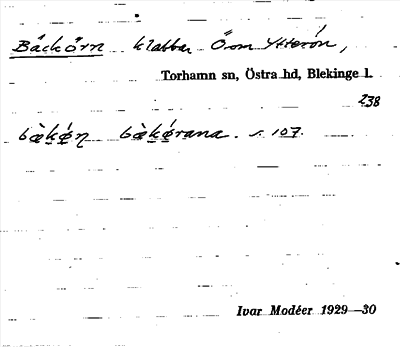 Bäckörn klabbar Ö om Ytterön,
Torhamn sn, Östra hd, Blekinge l.
238
bæ̀kǿn bæ̀kǿrana. s. 107.
Ivar Modéer 1929—30